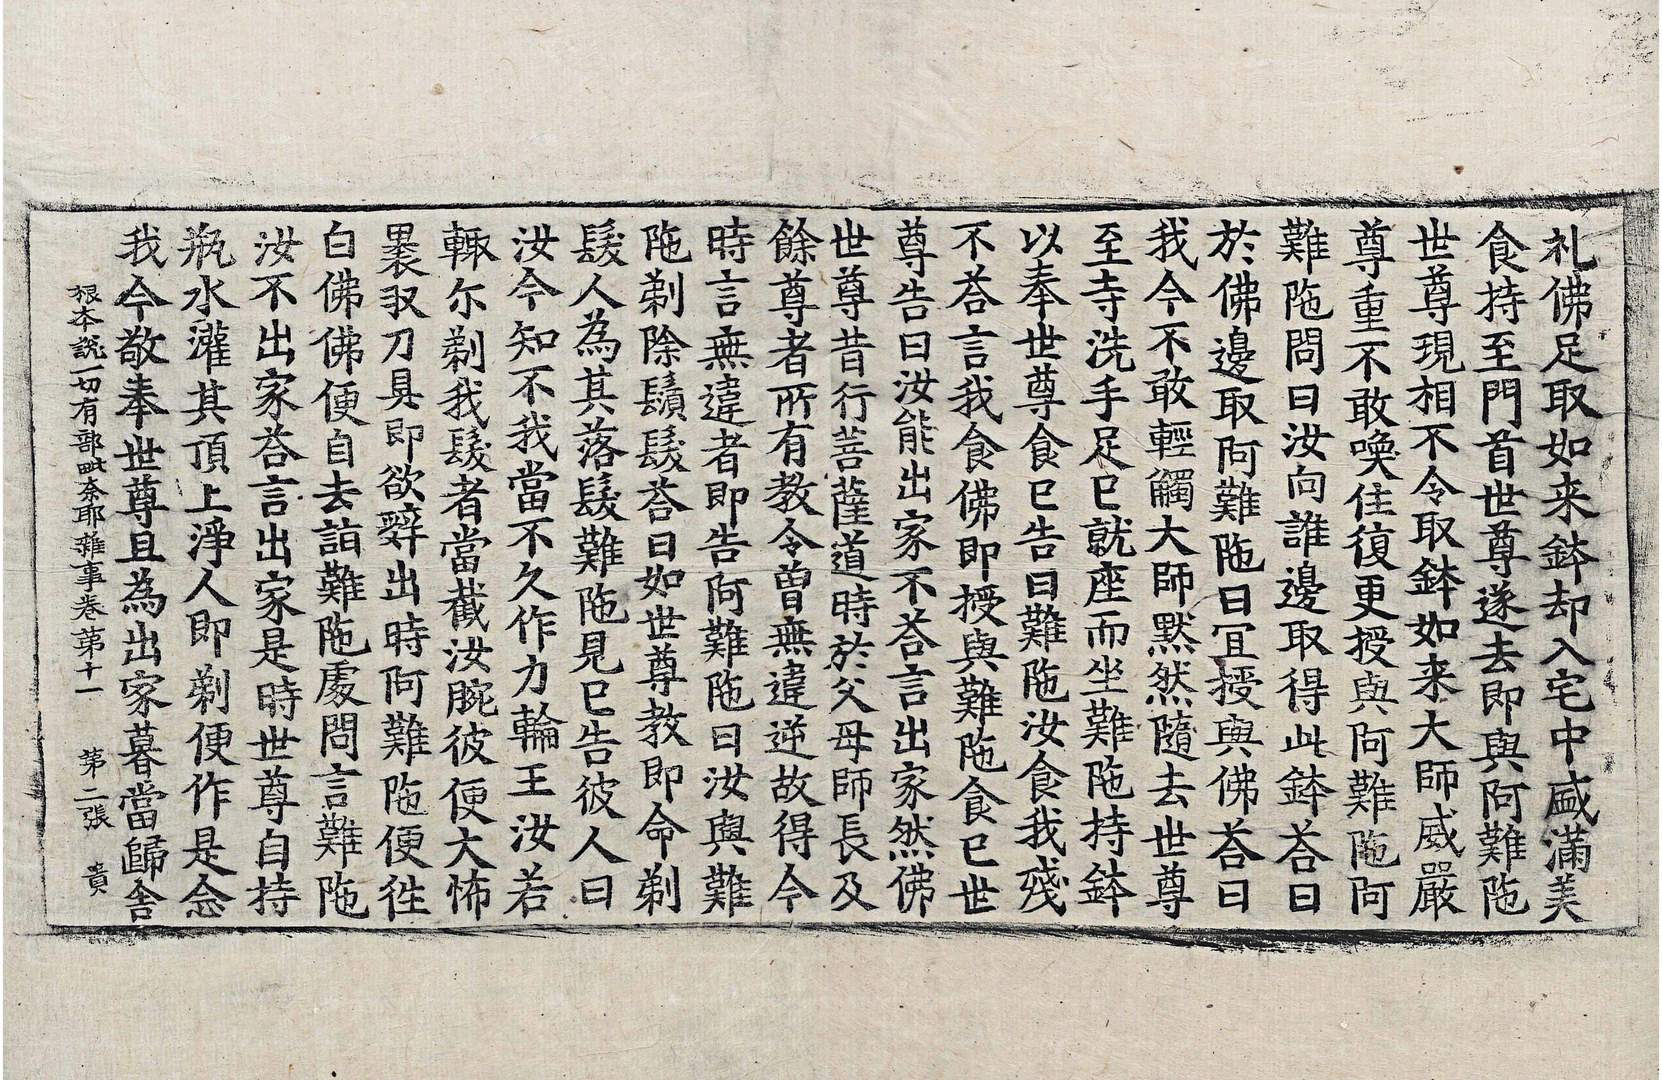 礼佛足取如来鉢却入宅中盛滿美
食持至門首世尊遂去即與阿難陁
世尊現相不令取鉢如来大師威嚴
尊重不敢喚住復更授與阿難陁阿
難陁問曰汝向誰邊取得此鉢荅曰
於佛邊取阿難陁曰冝授與佛荅曰
我今不敢輕觸大師黙然隨去世尊
至寺洗手足已就座而坐難陁持鉢
以奉世尊食已告曰難陁汝食我殘
不荅言我食佛即授與難陁食已世
尊告曰汝能出家不荅言出家然佛
世尊昔行菩薩道時於父母師長及
餘尊者所有教令曾無違逆故得今
時言無違者即告阿難陁曰汝與難
陁剃除鬚髮荅曰如世尊教即命剃
髮人為其落髮難陁見已告彼人曰
汝今知不我當不久作力輪王汝若
輙尒剃我髮者當截汝腕彼便大怖
褁収刀具即欲辤出時阿難陁便徃
白佛佛便自去詣難陁處問言難陁
汝不出家荅言出家是時世尊自持
瓶水灌其頂上淨人即剃便作是念
我今敬奉世尊且為出家暮當歸舎
根本說一切有部毗奈耶雜事卷第十一 第二張 貴